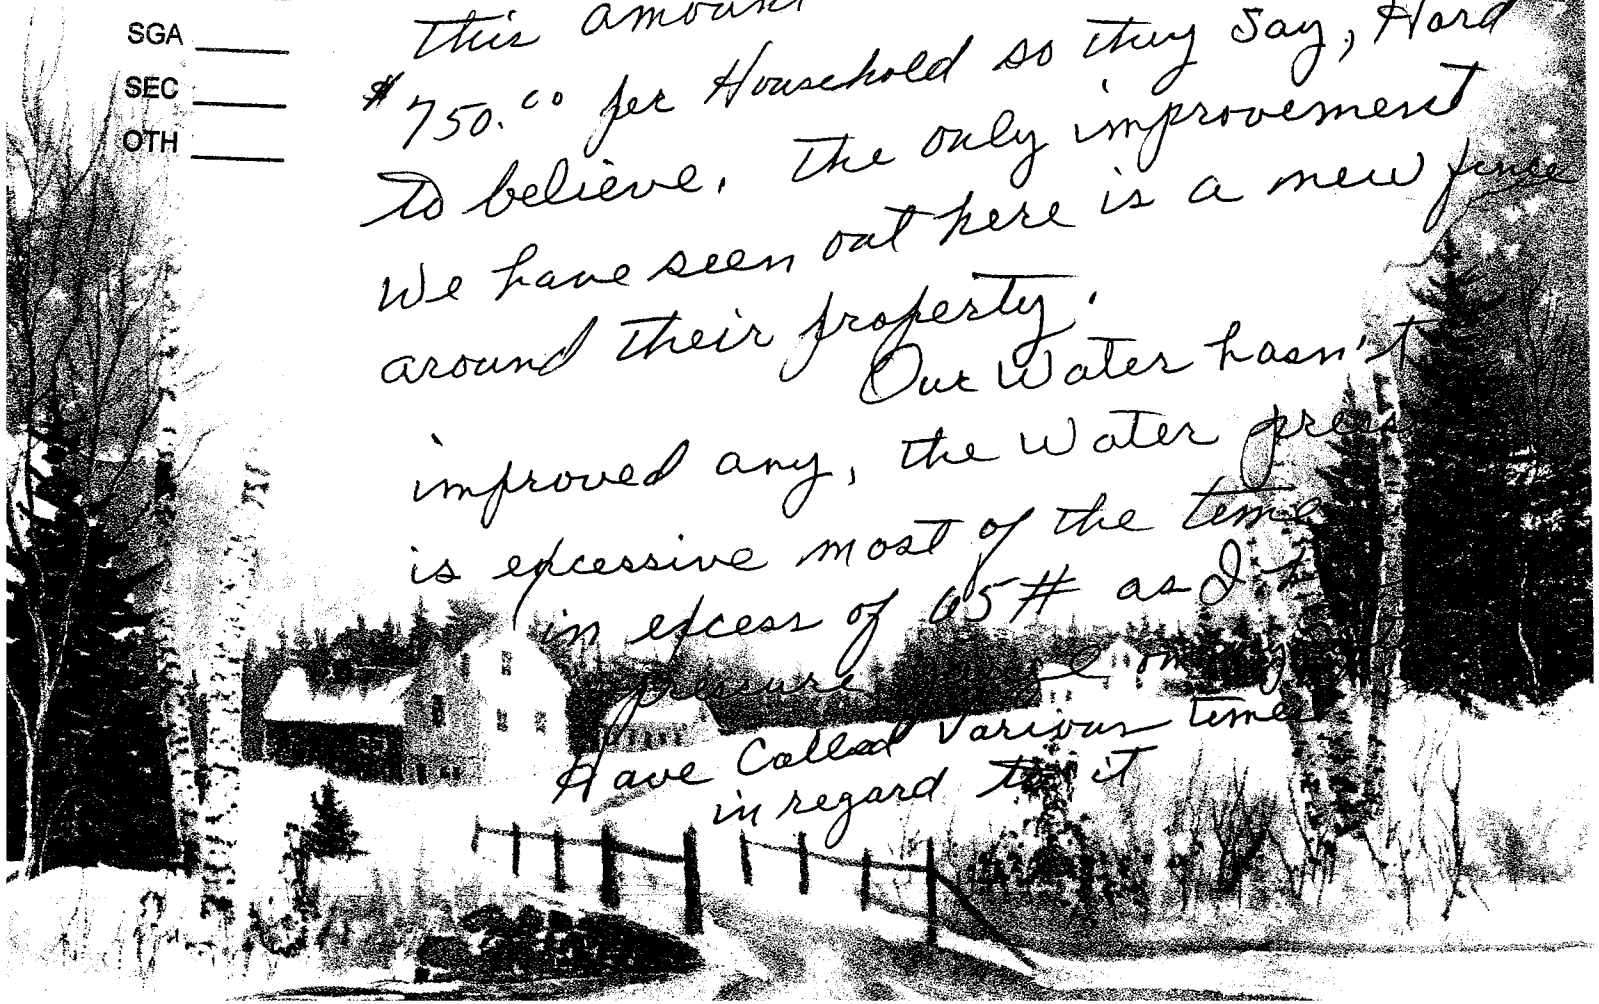 SGA
SEC
OTH
This amount
$750.00 per Household so they say, Hard
to believe. The only improvement
We have seen out here is a new fence
around their property.
Our Water hasn't
improved any, the Water press
is excessive most of the time
in excess of 65# as I
pressure on
Have Called Various times
in regard to it